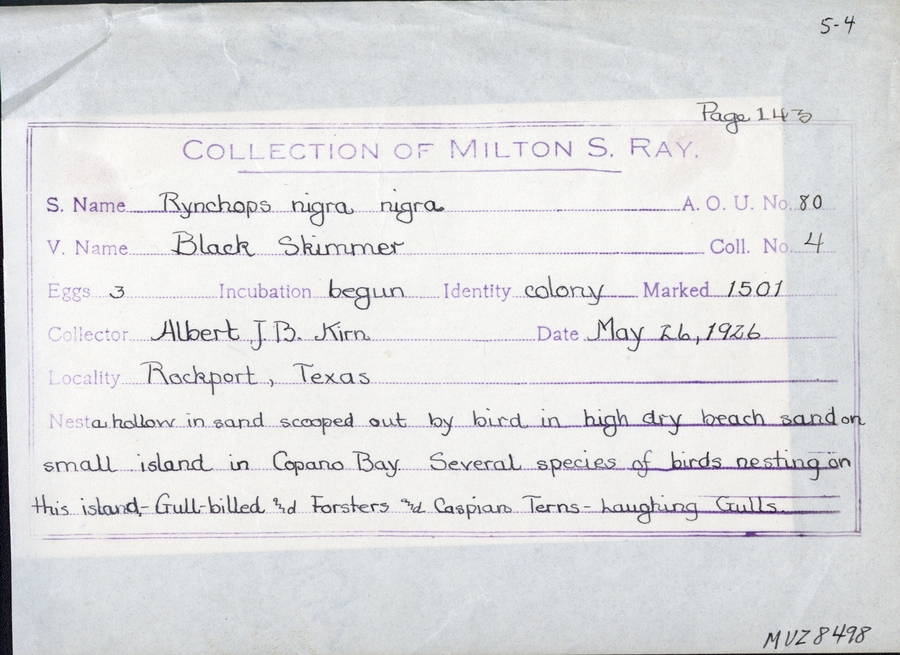 5-4
Page 143
COLLECTION OF MILTON S. RAY.
S. Name Rynchops nigra nigra A. O. U. No. 80
V. Name Black Skimmer Coll. No. 4
Eggs 3 Incubation begun Identity colony Marked 1501
Collector Albert J. B. Kirn Date May 26, 1926
Locality Rockport, Texas
Nest a hollow in sand scooped out by bird in high dry beach sand on
small island in Copano Bay. Several species of birds nesting on
this island,- Gull-billed and Forsters and Caspian Terns - Laughing Gulls.
MVZ 8498